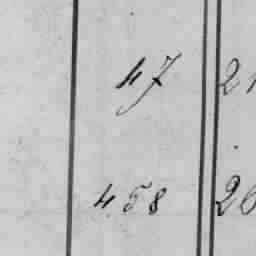 47 21
458 26